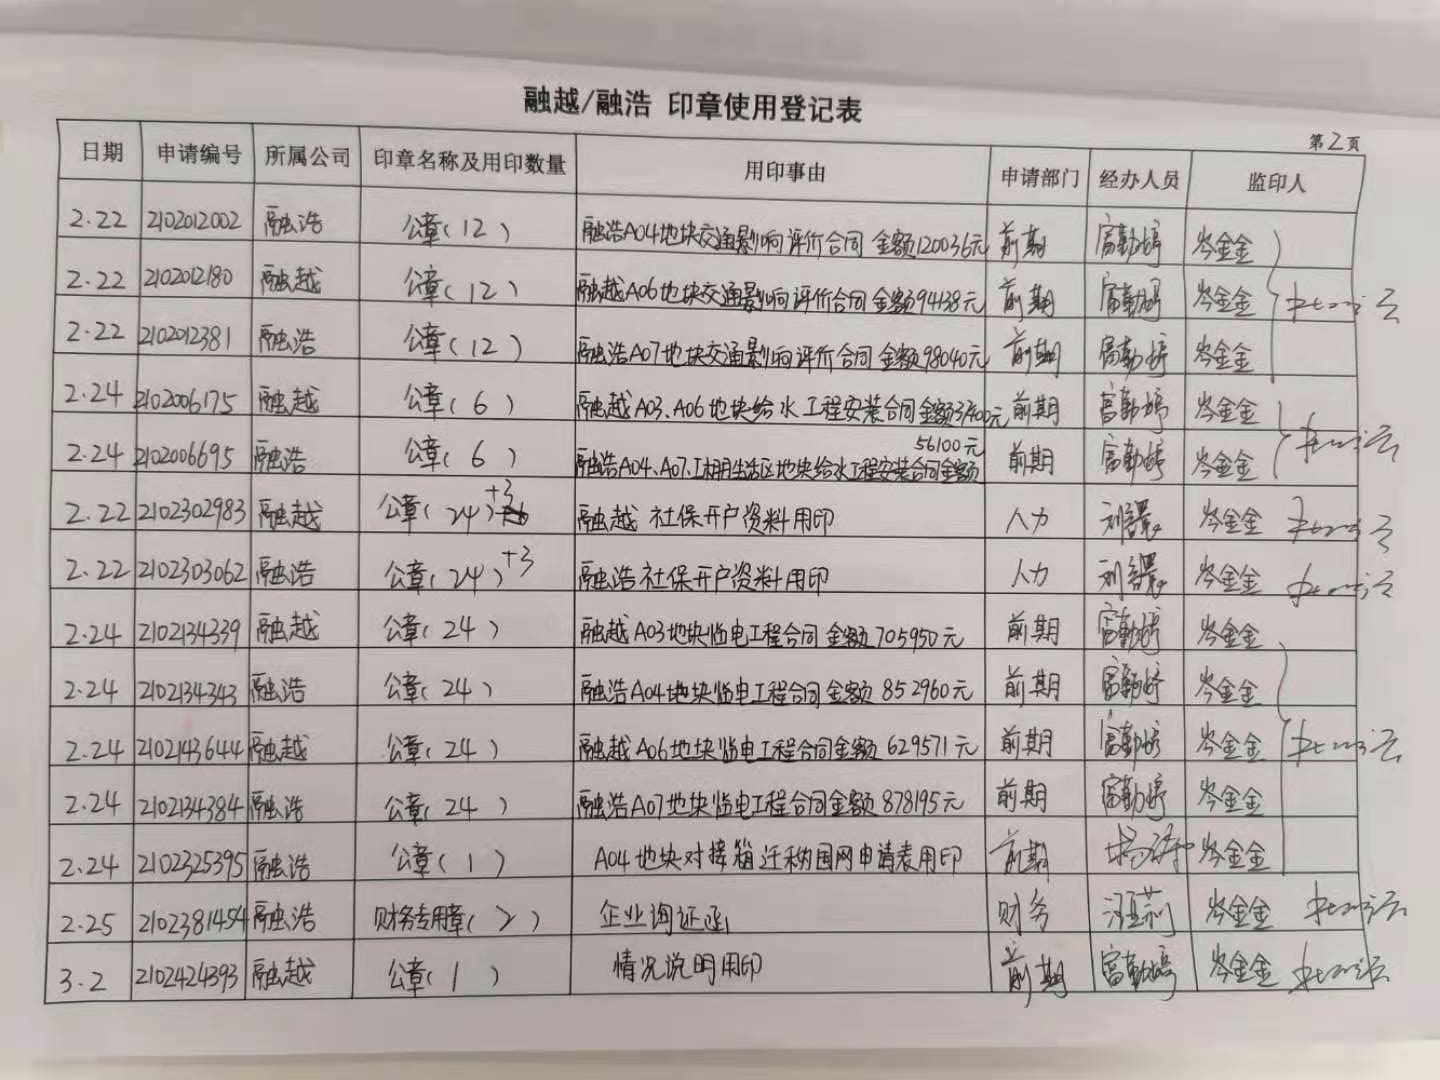 融越/融浩 印章使用登记表
第2页
日期 申请编号 所属公司 印章名称及用印数量 用印事由 申请部门 经办人员 监印人
2.22 2102012002 融浩 公章(12) 融浩A04地块交通影响评价合同 金额120036元 前期 富勤婷 岑金金
2.22 2102012180 融越 公章(12) 融越A06地块交通影响评价合同 金额94138元 前期 富勤婷 岑金金
2.22 2102012381 融浩 公章(12) 融浩A07地块交通影响评价合同 金额98040元 前期 富勤婷 岑金金
2.24 2102006175 融越 公章(6) 融越A03、A06地块给水工程安装合同金额37400元 前期 富勤婷 岑金金
56100元
2.24 2102006695 融浩 公章(6) 融浩A04、A07、工棚生活区地块给水工程安装合同金额 前期 富勤婷 岑金金
2.22 2102302983 融越 公章(24)+3 融越 社保开户资料用印 人力 岑金金
2.22 2102303062 融浩 公章(24)+3 融浩社保开户资料用印 人力 岑金金
2.24 2102134339 融越 公章(24) 融越A03地块临电工程合同 金额705950元 前期 富勤婷 岑金金
2.24 2102134343 融浩 公章(24) 融浩A04地块临电工程合同 金额 852960元 前期 富勤婷 岑金金
2.24 2102143644 融越 公章(24) 融越A06地块临电工程合同金额 629571元 前期 富勤婷 岑金金
2.24 2102134384 融浩 公章(24) 融浩A07地块临电工程合同金额 878195元 前期 富勤婷 岑金金
2.24 2102325395 融浩 公章(1) A04地块对接箱迁移国网申请表用印 前期 岑金金
2.25 2102381454 融浩 财务专用章(2) 企业询证函 财务 汪莉 岑金金
3.2 2102424393 融越 公章(1) 情况说明用印 前期 富勤婷 岑金金